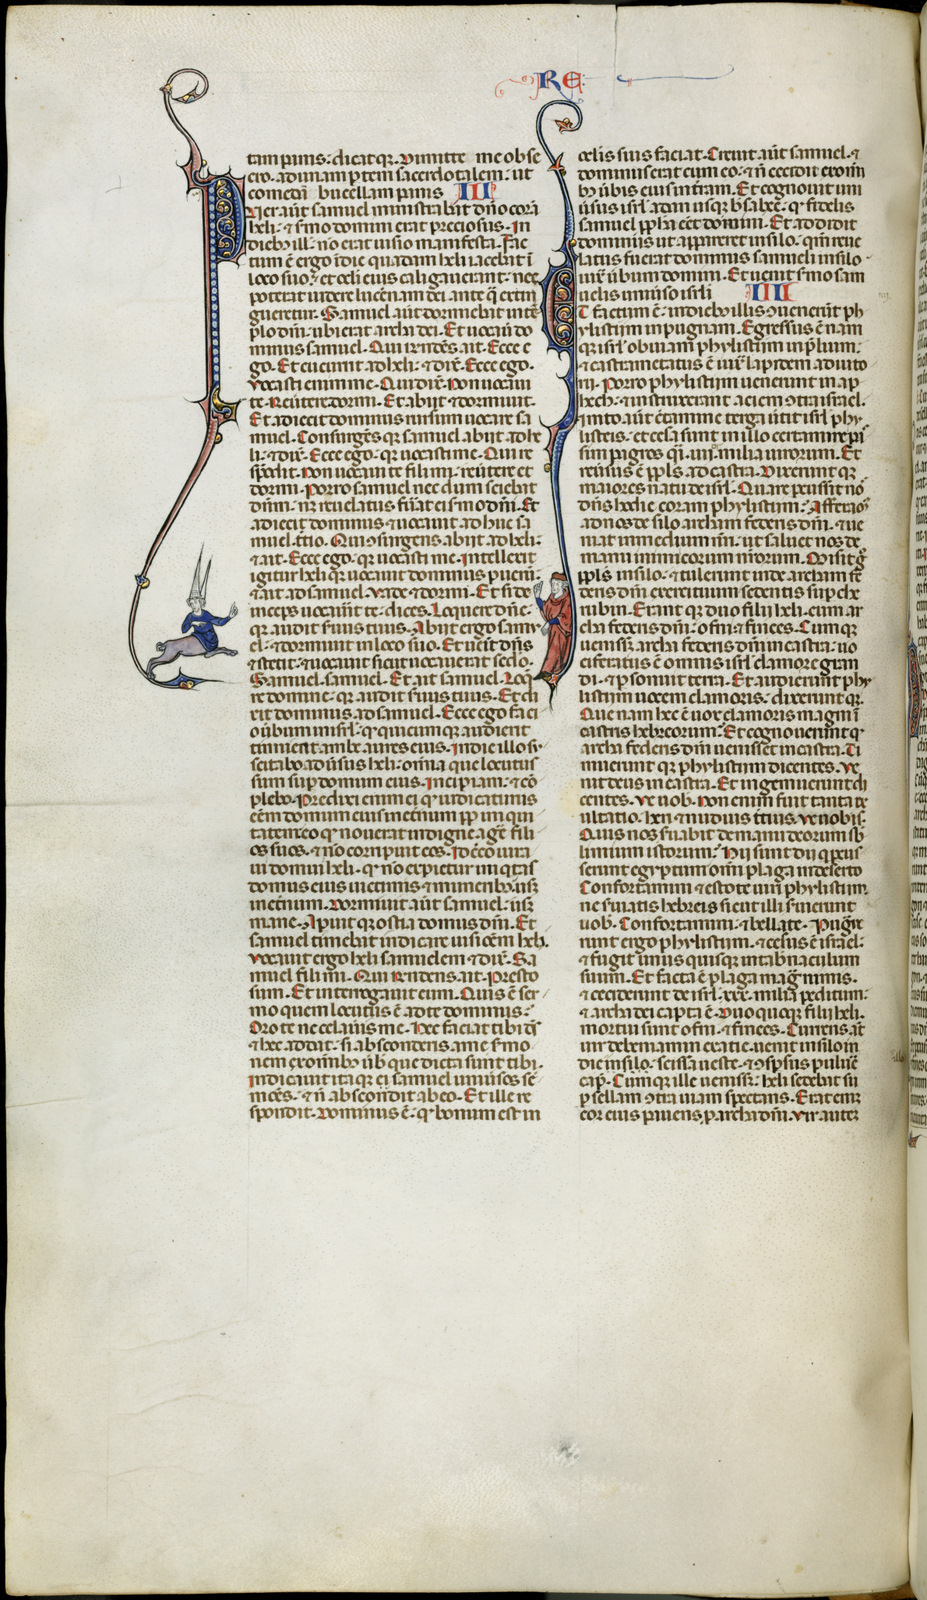 RE
tam panis: dicatq. Dimitte me obse
cro. ad unam ptem sacerdotalem: ut
comedã bucellam panis. III
Puer aũt samuel ministrabat dño corã
heli. & smo domini erat preciosus. In
dieb ill. no erat visio manifesta. Fac
tum ẽ ergo ĩ die quadam heli iacebat ĩ
loco suo. et oculi eius caligaverant. nec
poterat videre lucernam dei ante q̃ extin
gueretur. Samuel aũt dormiebat in tẽ
plo dñi. ubi erat archa dei. Et vocav do
minus samuel. Qui rñdens ait. Ecce e
go. Et cucurrit ad heli. & dix. Ecce ego.
vocasti enim me. Qui dix. Non vocavi
te. Revtere dormi. Et abiit & dormivit.
Et adiecit dominus rursum vocare sa
muel. Consurgẽs q. samuel abiit ad he
li. & dix. Ecce ego. q. vocasti me. Qui re
spõdit. Non vocavi te fili mi. revtere et
dormi. Porro samuel nec dum sciebat
dñm. neq. revelatus fũat ei smo dñi. Et
adiecit dominus & vocavit adhuc sa
muel. tcio. Qui 9surgens abiit ad heli.
& ait. Ecce ego. q. vocasti me. Intellexit
igitur heli q. vocavit dominus puerũ.
& ait ad samuel. Vade & dormi. Et si de
inceps vocavit te. dices. Loquere dñe.
q. audit svus tuus. Abiit ergo samu
el. & dormivit in loco suo. Et venit dñs
& stetit. & vocavit sicut vocaverat sedo.
Samuel samuel. Et ait samuel. Loq
re domine. q. audit svus tuus. Et di
xit dominus ad samuel. Ecce ego faci
o vbum in isrl. q quicumq. audierit
tinnient ambe aures eius. In die illo su
scitabo adṽsus heli. omnia que locutus
sum sup domum eius. Incipiam. & cõ
plebo. Predixi enim ei q. iudicaturus
eẽm domum eius in etnum pp iniqui
tatem eo q. noverat indigne agẽ fili
os suos. & no corripuit eos. Idcco iura
vi domui heli. q. no expietur iniqtas
domus eius victimis & munerib usq
in etnum. Dormivit aũt samuel usq
mane. Apuitq. ostia domus dñi. Et
samuel timebat indicare visiõem heli.
Vocavit ergo heli samuelem & dix. Sa
muel fili mi. Qui rñdens ait. Presto
sum. Et interrogavit eum. Quis ẽ ser
mo quem locutus ẽ ad te dominus.
Oro te ne celaveris me. Hec faciat tibi dš
& hec addat. si absconderis a me smo
nem ex omib vb que dicta sunt tibi.
Indicavit itaq. ei samuel univsos se
mões. & ñ abscondit ab eo. Et ille re
spondit. Dominus ẽ. q. bonum est in
oculis suis faciat. Crevit aũt samuel. &
dominus erat cum eo. & ñ cecidit ex om
b vbis eius in tram. Et cognovit uni
vsus isrl a dan usq. bsabee. q. fidelis
samuel ppha eet domini. Et addidit
dominus ut appareret in silo. qm reve
latus fuerat dominus samueli in silo
iux vbum domini. Et venit smo sam
uelis univso isrli. IIII
Et factum ẽ. in dieb illis 9venerũt ph
ylistiim in pugnam. Egressus ẽ nam
q. isrl obviam phylistiim in plium.
& castrametatus ẽ iux lapidem adiuto
rij. Porro phylistiim venerunt in ap
hech. & instruxerunt aciem 9tra israel.
Inito aũt ctamine terga vtit isrl phy
listeis. et cesa sunt in illo certamine pas
sim p agros qsi iiii milia virorum. Et
revsus ẽ ppls ad castra. Dixerunt q.
maiores natu de isrl. Quare pcussit nos
dñs hodie coram phylistiim. Afferam9
ad nos de silo archam federis dñi. & ve
niat in medium nrm. ut salvet nos de
manu inimicorum nrorum. Misit g
ppls in silo. & tulerunt inde archam fe
deris dñi exercituum sedentis sup che
rubin. Erant q. duo filii heli. cum ar
cha federis dñi. ofni & finees. Cumq.
venisset archa federis dñi in castra. vo
ciferatus ẽ omnis isrl clamore gran
di. & psonuit terra. Et audierunt phy
listiim vocem clamoris. dixerunt q.
Que nam hec ẽ vox clamoris magni ĩ
castris hebreorum. Et cognoverunt q.
archa federis dñi venisset in castra. Ti
muerunt q. phylistiim dicentes. Ve
nit deus in castra. Et ingemuerunt di
centes. Ve nob. Non enim fuit tanta ex
ultatio. heri & nudius tcius. ve nobis.
Quis nos svabit de manu deorum sb
limium istorum. Hii sunt dii q pcus
serunt egyptum omi plaga in deserto
Confortamini & estote viri phylistiim.
ne sviatis hebreis sicut illi svierunt
vob. Confortamini. & bellate. Pugna
runt ergo phylistiim. & cesus ẽ israel.
& fugit unus quisque in tabnaculum
suum. Et facta ẽ plaga magna nimis.
& ceciderunt de isrl xxx milia peditum.
& archa dei capta ẽ. Duo quoq. filii heli.
mortui sunt ofni. & finees. Currens aũt
vir de beniamin ex acie. venit in silo in
die in silo. scissa veste. & 9spsus pulvẽ
cap. Cumq. ille venisset. heli sedebat su
p sellam 9tra viam spectans. Erat eni
cor eius pavens p archa dñi. Vir autem